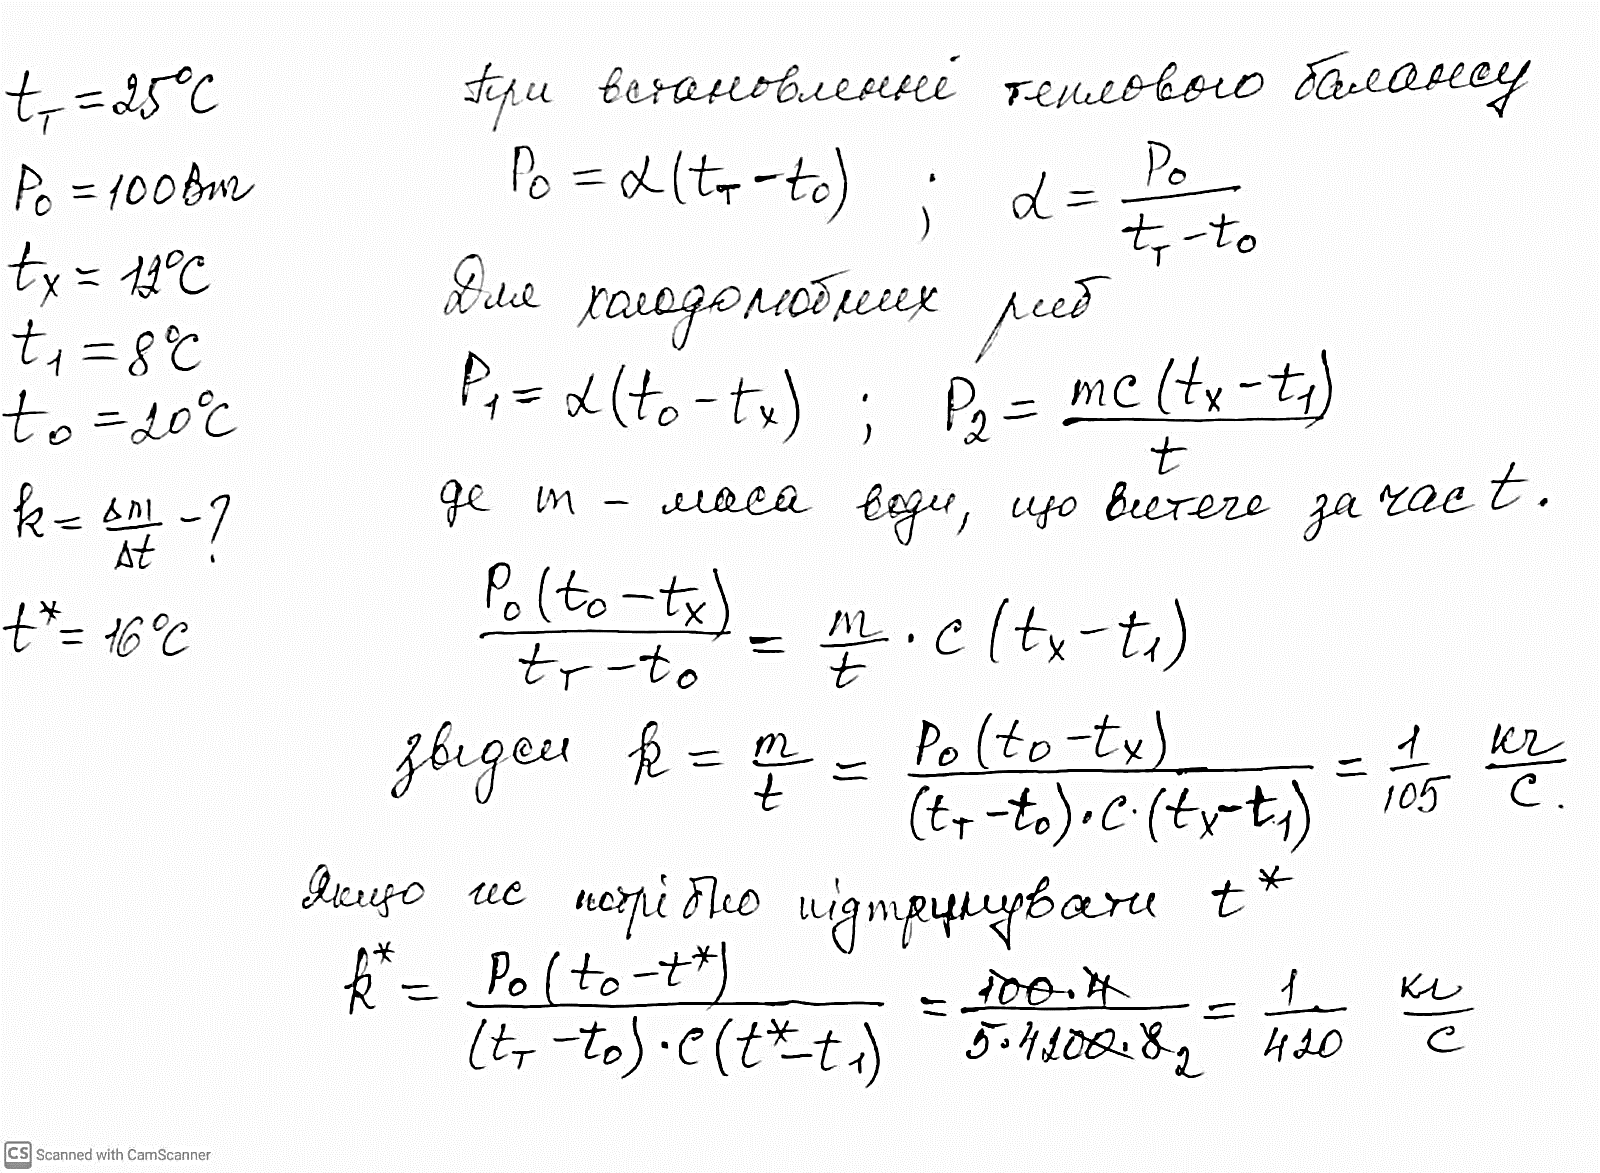 t_T = 25°C
P_0 = 100 Вт
t_x = 12°C
t_1 = 8°C
t_0 = 20°C
k = Δm/Δt - ?
t* = 16°C
При встановленні теплового балансу
P_0 = α(t_T - t_0) ; α = P_0/(t_T - t_0)
Для холодолюбних риб
P_1 = α(t_0 - t_x) ; P_2 = mc(t_x - t_1)/t
де m - маса води, що витече за час t.
P_0(t_0 - t_x)/(t_T - t_0) = m/t · c(t_x - t_1)
звідси k = m/t = P_0(t_0 - t_x)/((t_T - t_0)·c·(t_x - t_1)) = 1/105 кг/с.
Якщо же потрібно підтримувати t*
k* = P_0(t_0 - t*)/((t_T - t_0)·c(t* - t_1)) = 100·4/(5·4200·8 2) = 1/420 кг/с
CS Scanned with CamScanner